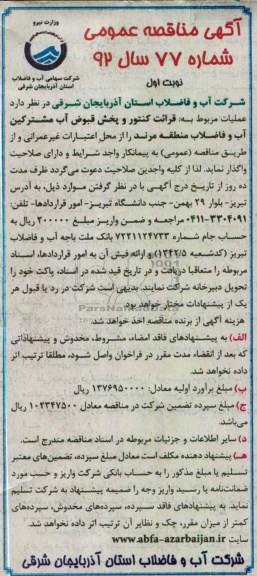 آگهی مناقصه عمومی
شماره ۷۷ سال ۹۲
نوبت اول
وزارت نیرو
شرکت سهامی آب و فاضلاب
استان آذربایجان شرقی
شرکت آب و فاضلاب استان آذربایجان شرقی در نظر دارد
عملیات مربوط به: قرائت کنتور و پخش قبوض آب مشترکین
آب و فاضلاب منطقه مرند را از محل اعتبارات غیرعمرانی و از
طریق مناقصه (عمومی) به پیمانکار واجد شرایط و دارای صلاحیت
واگذار نماید. لذا از کلیه واجدین صلاحیت دعوت می‌گردد ظرف مدت
ده روز از تاریخ درج آگهی با در نظر گرفتن موارد ذیل، به آدرس
تبریز- بلوار ۲۹ بهمن- جنب دانشگاه تبریز- امور قراردادها- تلفن:
۳۳۰۴۰۹۱-۰۴۱۱ مراجعه و ضمن واریز مبلغ ۲۰۰۰۰۰ ریال به
حساب جام شماره ۷۲۲۱۱۲۴۷۳۳ بانک ملت باجه آب و فاضلاب
تبریز (کدشعبه ۱۳۴۲/۵) و ارائه فیش آن به امور قراردادها، اسناد
مربوطه را متعاقبا دریافت و در تاریخ قید شده در اسناد، پاکت خود را
تحویل دبیرخانه شرکت نمایند. بدیهی است شرکت در رد یا قبول هر
یک از پیشنهادات مختار خواهد بود.
هزینه آگهی از برنده مناقصه اخذ خواهد شد.
الف) به پیشنهادهای فاقد امضاء، مشروط، مخدوش و پیشنهاداتی
که بعد از انقضاء مدت مقرر در فراخوان واصل شود، مطلقا ترتیب اثر
داده نخواهد شد.
ب) مبلغ برآورد اولیه معادل: ۱۳۷۶۹۵۰۰۰۰ ریال
ج) مبلغ سپرده تضمین شرکت در مناقصه معادل ۱۰۳۳۴۷۵۰۰ ریال
می‌باشد.
د) سایر اطلاعات و جزئیات مربوطه در اسناد مناقصه مندرج است.
هـ) پیشنهاد دهنده مکلف است معادل مبلغ سپرده، تضمین‌های معتبر
تسلیم یا مبلغ مذکور را به حساب بانکی شرکت واریز و حسب مورد
ضمانت‌نامه یا رسید واریز وجه را ضمیمه پیشنهاد به شرکت تسلیم
نماید. به پیشنهادهای فاقد سپرده، سپرده‌های مخدوش، سپرده‌های
کمتر از میزان مقرر، چک و نظایر آن ترتیب اثر داده نخواهد شد.
سایت www.abfa-azarbaijan.ir
شرکت آب و فاضلاب استان آذربایجان شرقی